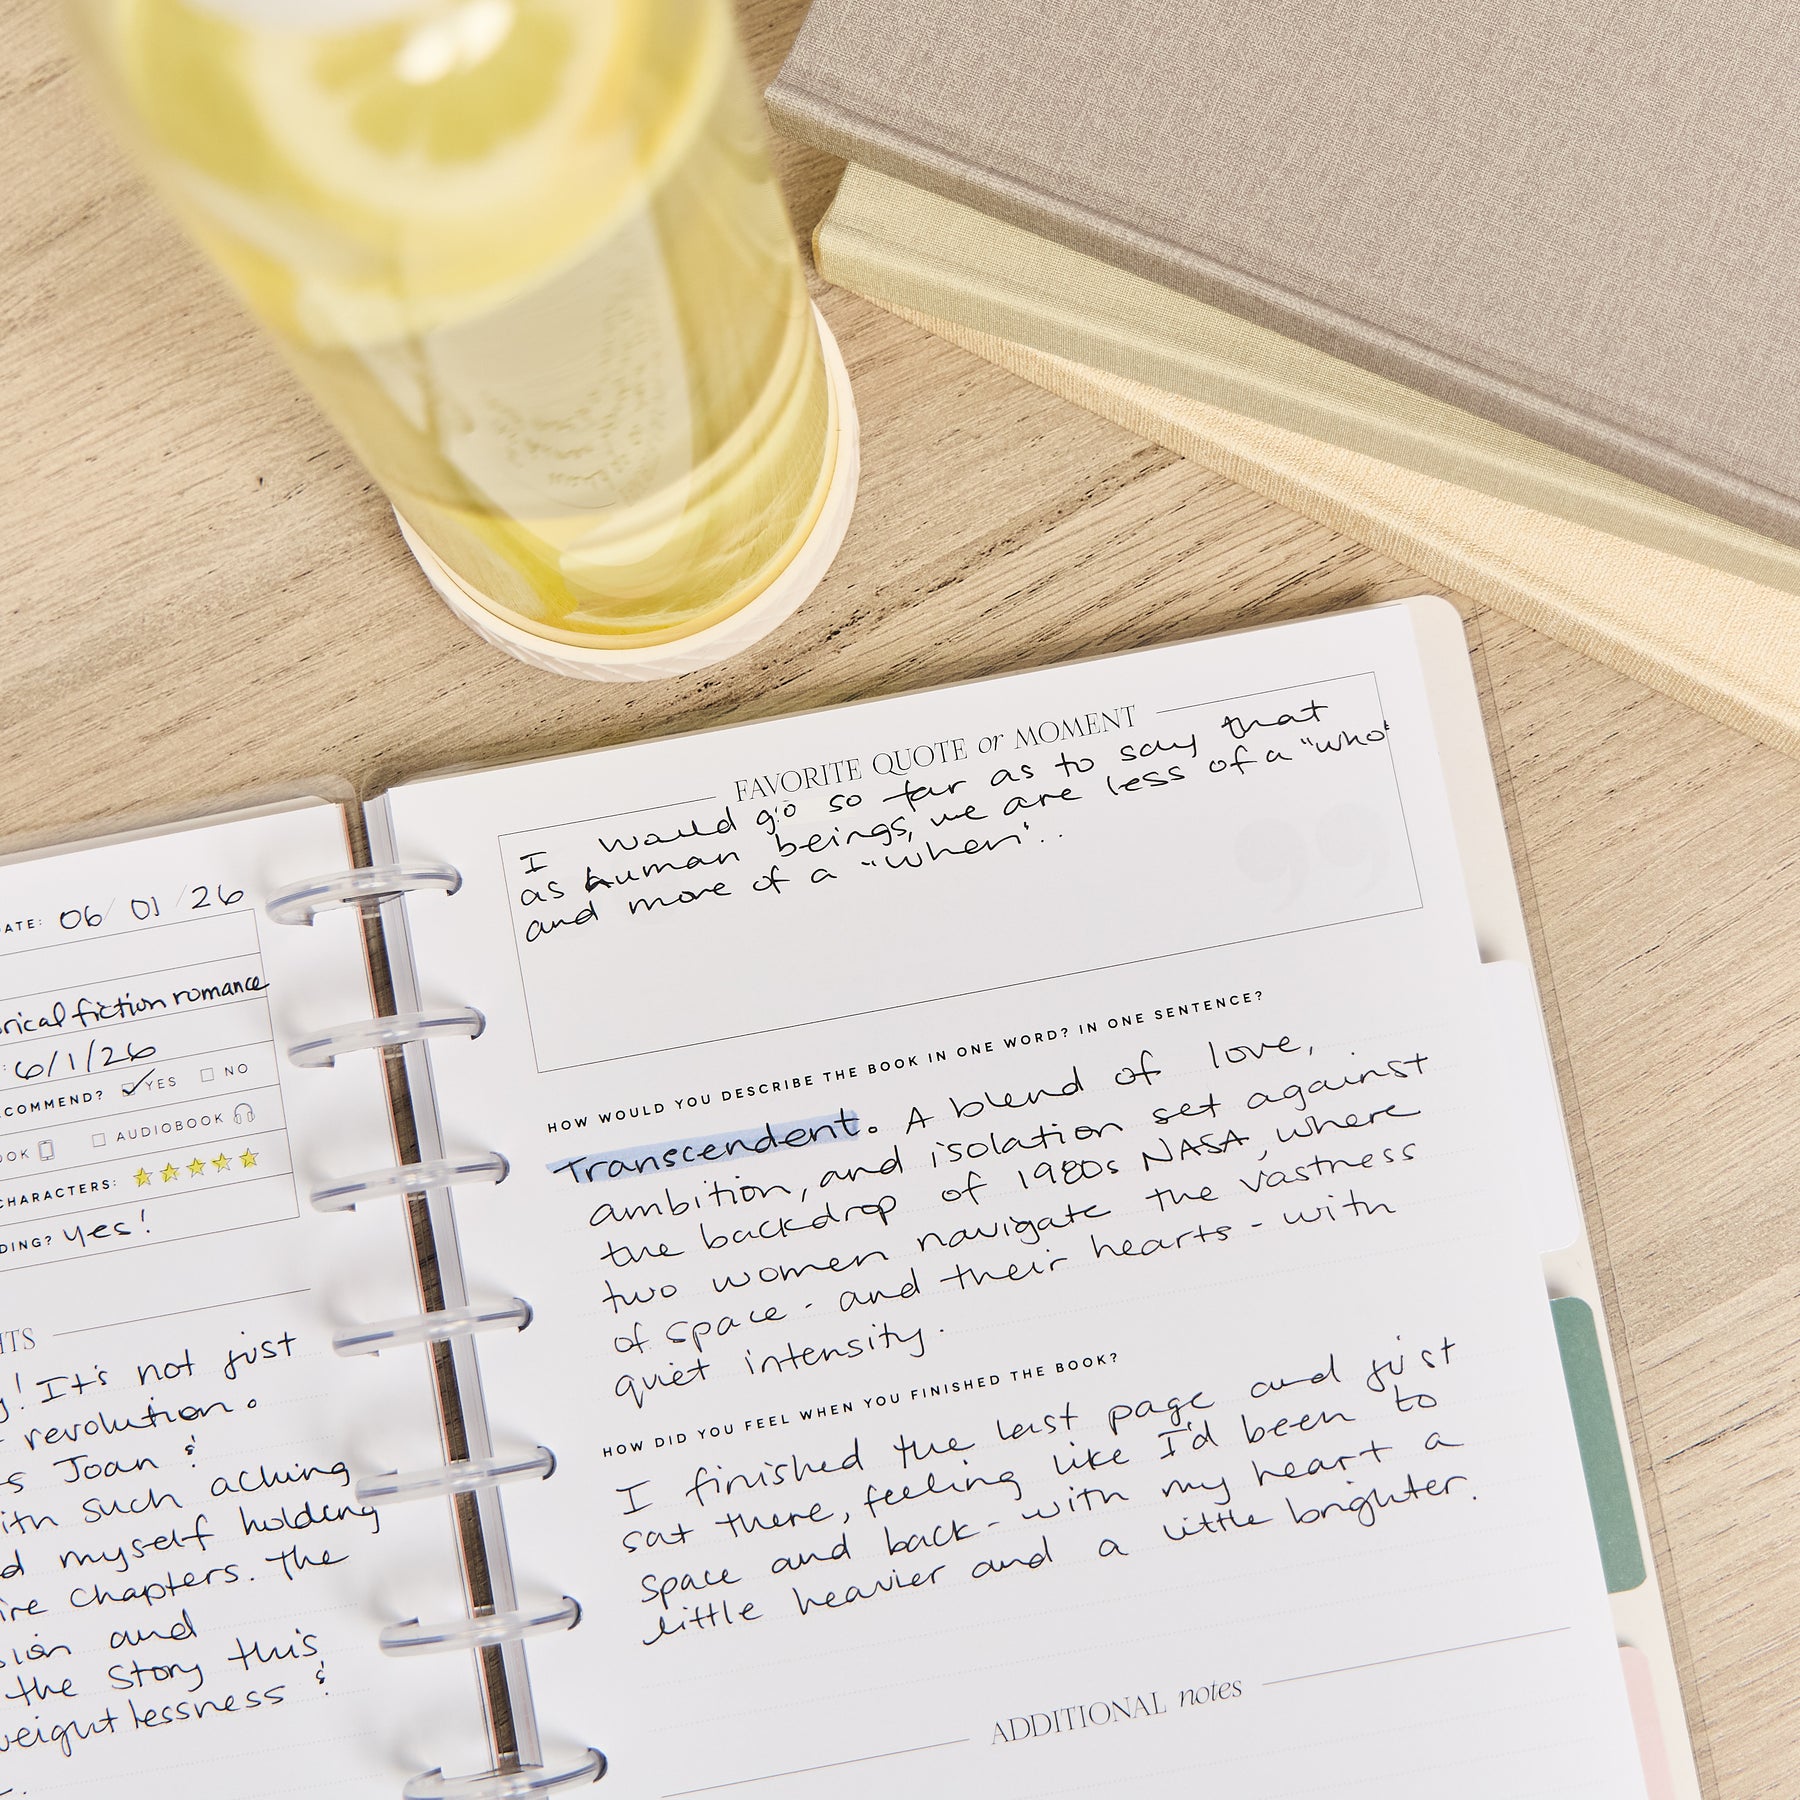 DATE: 06/01/26
fiction romance
: 6/1/26
RECOMMEND? YES NO
AUDIOBOOK
CHARACTERS:
yes!
y! It's not just
revolution.
s Joan &
with such aching
d myself holding
chapters. The
and
the story this,
weightlessness &
FAVORITE QUOTE or MOMENT
I would go so far as to say that
as human beings, we are less of a "who"
and more of a "when"..
HOW WOULD YOU DESCRIBE THE BOOK IN ONE WORD? IN ONE SENTENCE?
Transcendent. A blend of love,
ambition, and isolation set against
the backdrop of 1980s NASA, where
two women navigate the vastness
of space - and their hearts - with
quiet intensity.
HOW DID YOU FEEL WHEN YOU FINISHED THE BOOK?
I finished the last page and just
sat there, feeling like I'd been to
space and back - with my heart a
little heavier and a little brighter.
ADDITIONAL notes